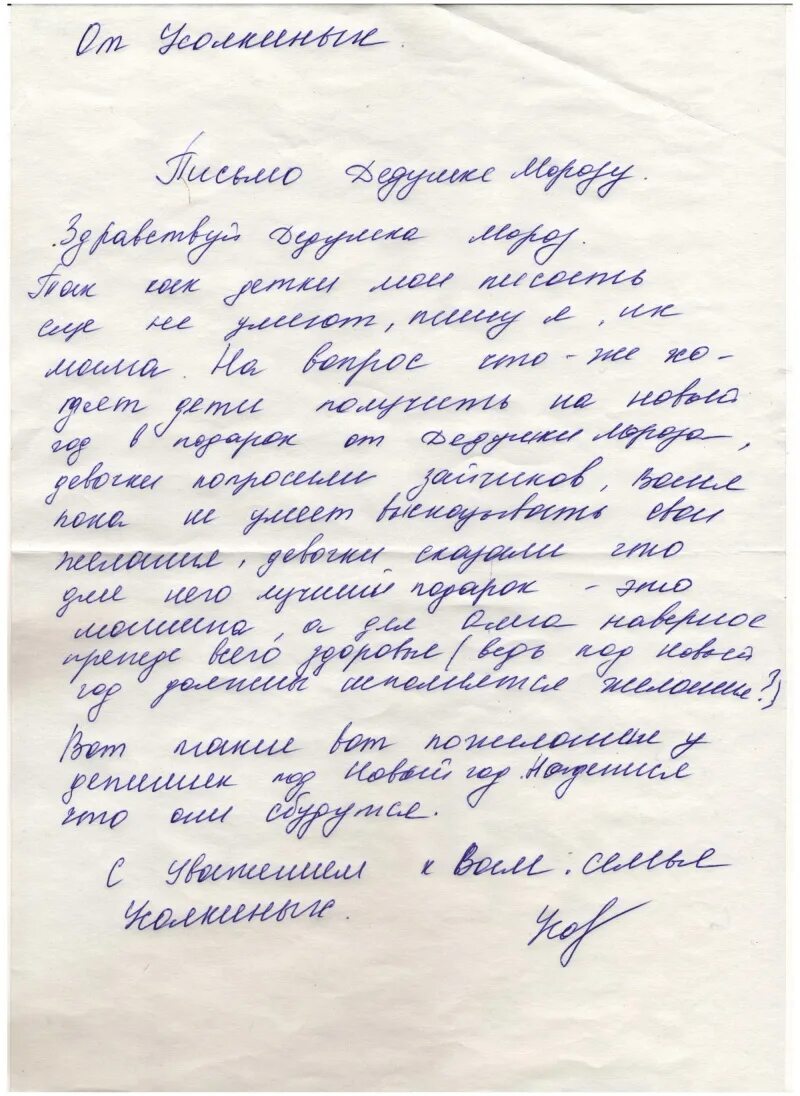 От Усолкиных.
Письмо Дедушке Морозу.
Здравствуй Дедушка Мороз.
Так как детки мои писать
еще не умеют, пишу я, их
мама. На вопрос что-же хо-
тят дети получить на новый
год в подарок от Дедушки Мороза,
девочки попросили зайчиков, Ваня
пока не умеет высказывать свои
желания, девочки сказали что
для него лучший подарок - это
машина, а для мамы наверное
прежде всего здоровье (ведь под новый
год должны исполнятся желания?)
Вот такие вот пожелания у
детишек под Новый год. Надеемся
что они сбудутся.
С Уважением к Вам. семья
Усолкиных.